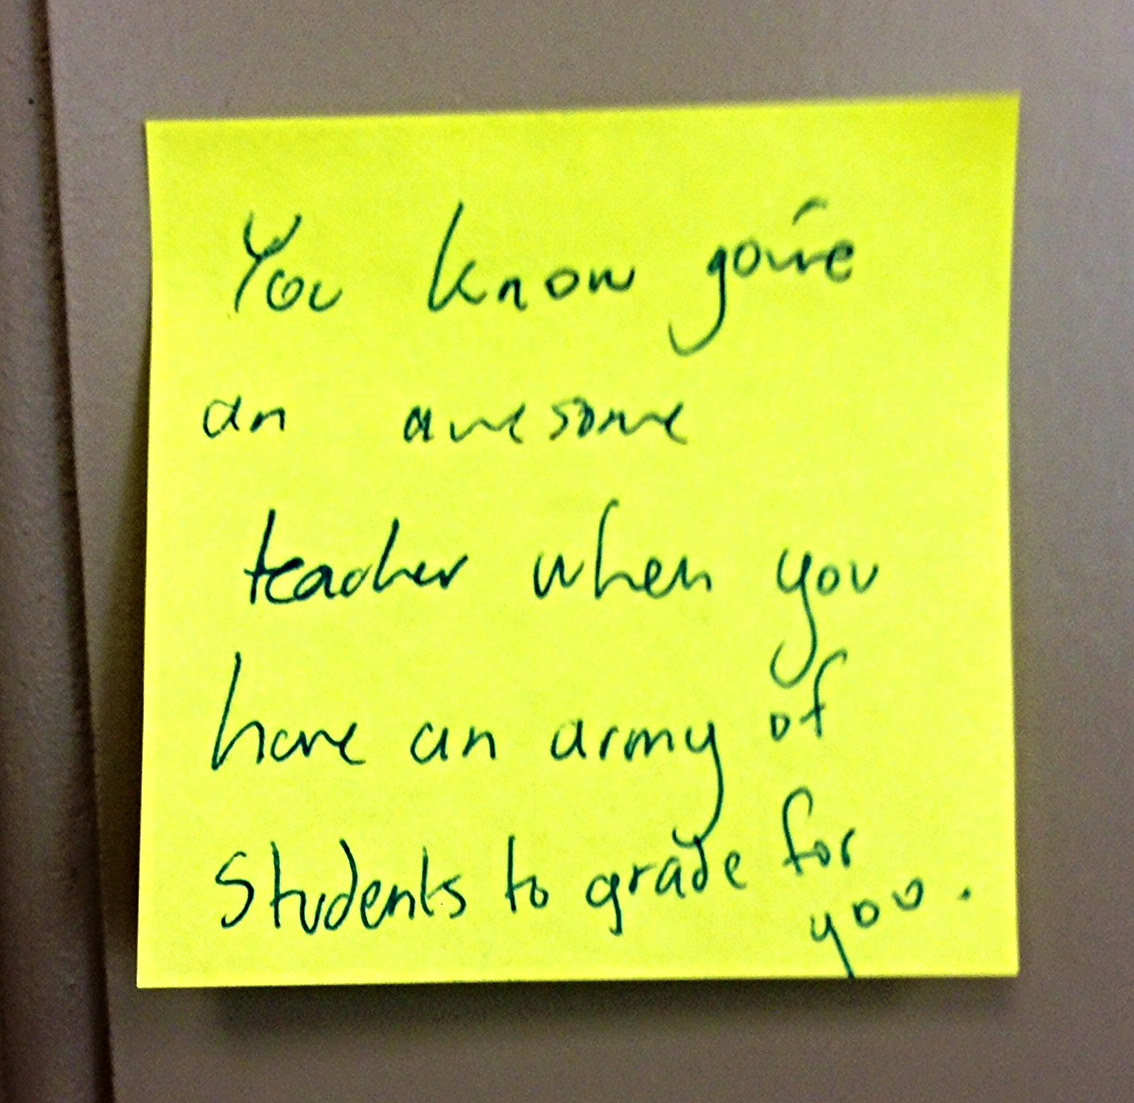 You know you're
an awesome
teacher when you
have an army of
Students to grade for
you.